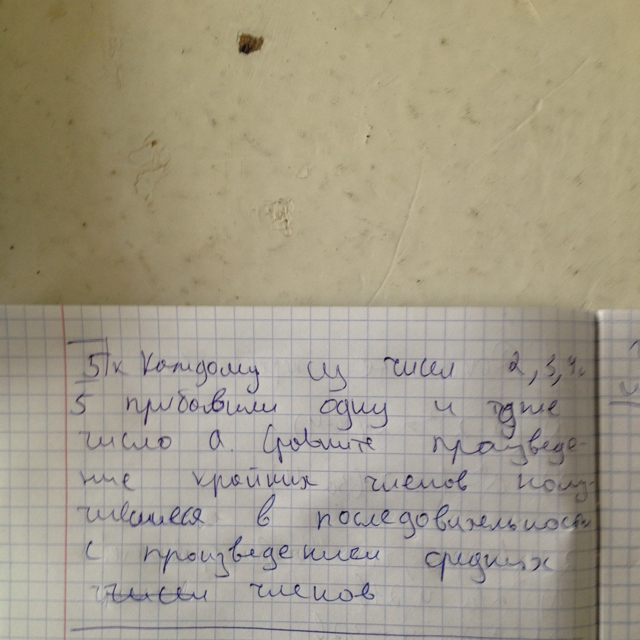 5) К каждому из чисел 2, 3, 4 и
5 прибавили одну и тоже
число a. Сравните произведе-
ние крайних членов полу-
чившиеся в последовательности
с произведением средних
чисел членов